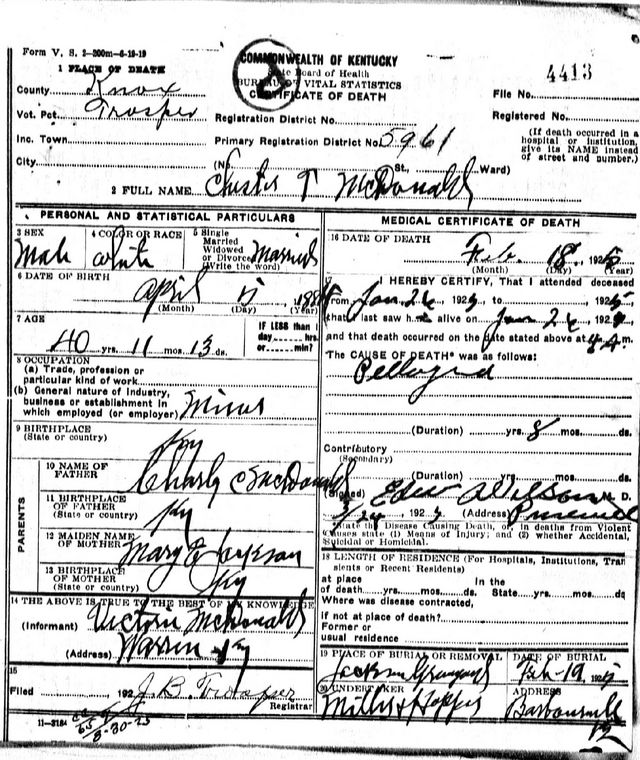 Form V. S. 2-200m-6-19-19
COMMONWEALTH OF KENTUCKY
State Board of Health
BUREAU OF VITAL STATISTICS
CERTIFICATE OF DEATH
4413
1 PLACE OF DEATH
County Knox
File No.
Vot. Pct. Trosper
Registration District No.
Registered No.
Inc. Town
Primary Registration District No. 5961
(If death occurred in a hospital or institution, give its NAME instead of street and number.)
City
(No. St., Ward)
2 FULL NAME Chester T McDonald
PERSONAL AND STATISTICAL PARTICULARS
3 SEX Male
4 COLOR OR RACE white
5 Single Married Widowed or Divorced (Write the word) Married
6 DATE OF BIRTH
April 5 188
(Month) (Day) (Year)
7 AGE
40 yrs. 11 mos. 13 ds.
IF LESS than 1 day hrs. or min?
8 OCCUPATION
(a) Trade, profession or particular kind of work
(b) General nature of industry, business or establishment in which employed (or employer) Miner
9 BIRTHPLACE
(State or country) Ky
PARENTS
10 NAME OF FATHER Charly McDonald
11 BIRTHPLACE OF FATHER (State or country) Ky
12 MAIDEN NAME OF MOTHER Mary E Jackson
13 BIRTHPLACE OF MOTHER (State or country) Ky
14 THE ABOVE IS TRUE TO THE BEST OF MY KNOWLEDGE
(Informant) Victoria McDonald
(Address) Warren Ky
15
Filed 192 J. B. Trosper
Registrar
11-3184
8-30-25
MEDICAL CERTIFICATE OF DEATH
16 DATE OF DEATH
Feb. 18, 1925
(Month) (Day) (Year)
17 I HEREBY CERTIFY, That I attended deceased
from Jan 26 1925 to 1925
that I last saw him alive on Jan 26 192
and that death occurred on the date stated above at m.
The CAUSE OF DEATH* was as follows:
Pellagra
(Duration) yrs. 8 mos. ds.
Contributory
(Secondary)
(Duration) yrs. mos. ds.
(Signed) Wilson M. D.
192 (Address)
*State the Disease Causing Death, or, in deaths from Violent Causes state (1) Means of Injury; and (2) whether Accidental, Suicidal or Homicidal.
18 LENGTH OF RESIDENCE (For Hospitals, Institutions, Transients or Recent Residents)
at place of death yrs. mos. ds. In the State yrs. mos. ds.
Where was disease contracted,
if not at place of death?
Former or usual residence
19 PLACE OF BURIAL OR REMOVAL
Jackson Graveyard
DATE OF BURIAL
Feb-19, 1925
20 UNDERTAKER
Miller & Hopper
ADDRESS
Barbourville
12